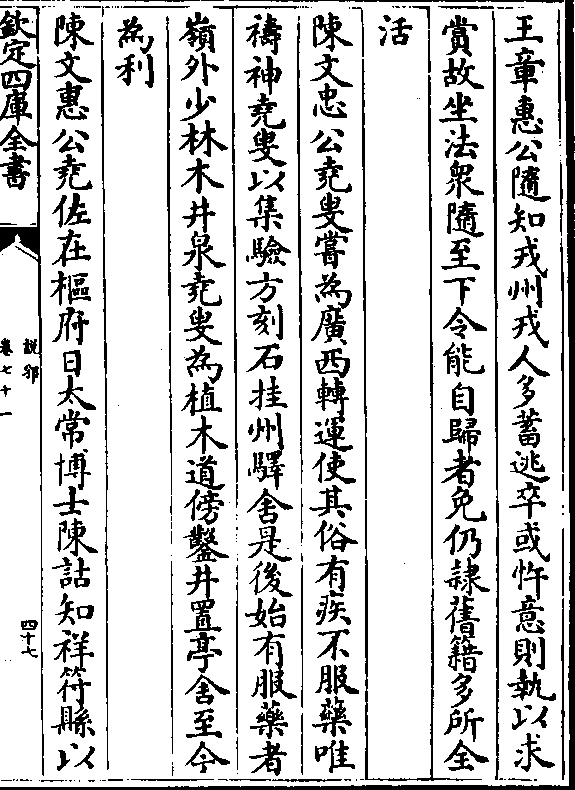 王章惠公隨知戎州戎人多蓄逃卒或忤意則執以求
賞故坐法衆隨至下令能自歸者免仍隷舊籍多所全
活
陳文忠公堯叟嘗為廣西轉運使其俗有疾不服藥唯
禱神堯叟以集驗方刻石挂州驛舍是後始有服藥者
嶺外少林木井泉堯叟為植木道傍鑿井置亭舍至今
為利
陳文惠公堯佐在樞府日太常博士陳詁知祥符縣以
欽定四庫全書
說郛
卷七十一
四十七